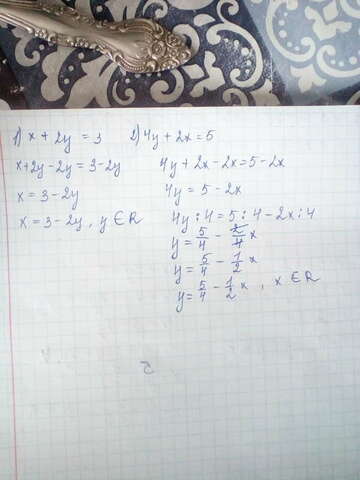 1) x + 2y = 3
x+2y-2y=3-2y
x = 3-2y
x = 3-2y, y ∈ R
2) 4y + 2x = 5
4y + 2x - 2x = 5 - 2x
4y = 5 - 2x
4y : 4 = 5 : 4 - 2x : 4
y = 5/4 - 2/4 x
y = 5/4 - 1/2 x
y = 5/4 - 1/2 x, x ∈ R